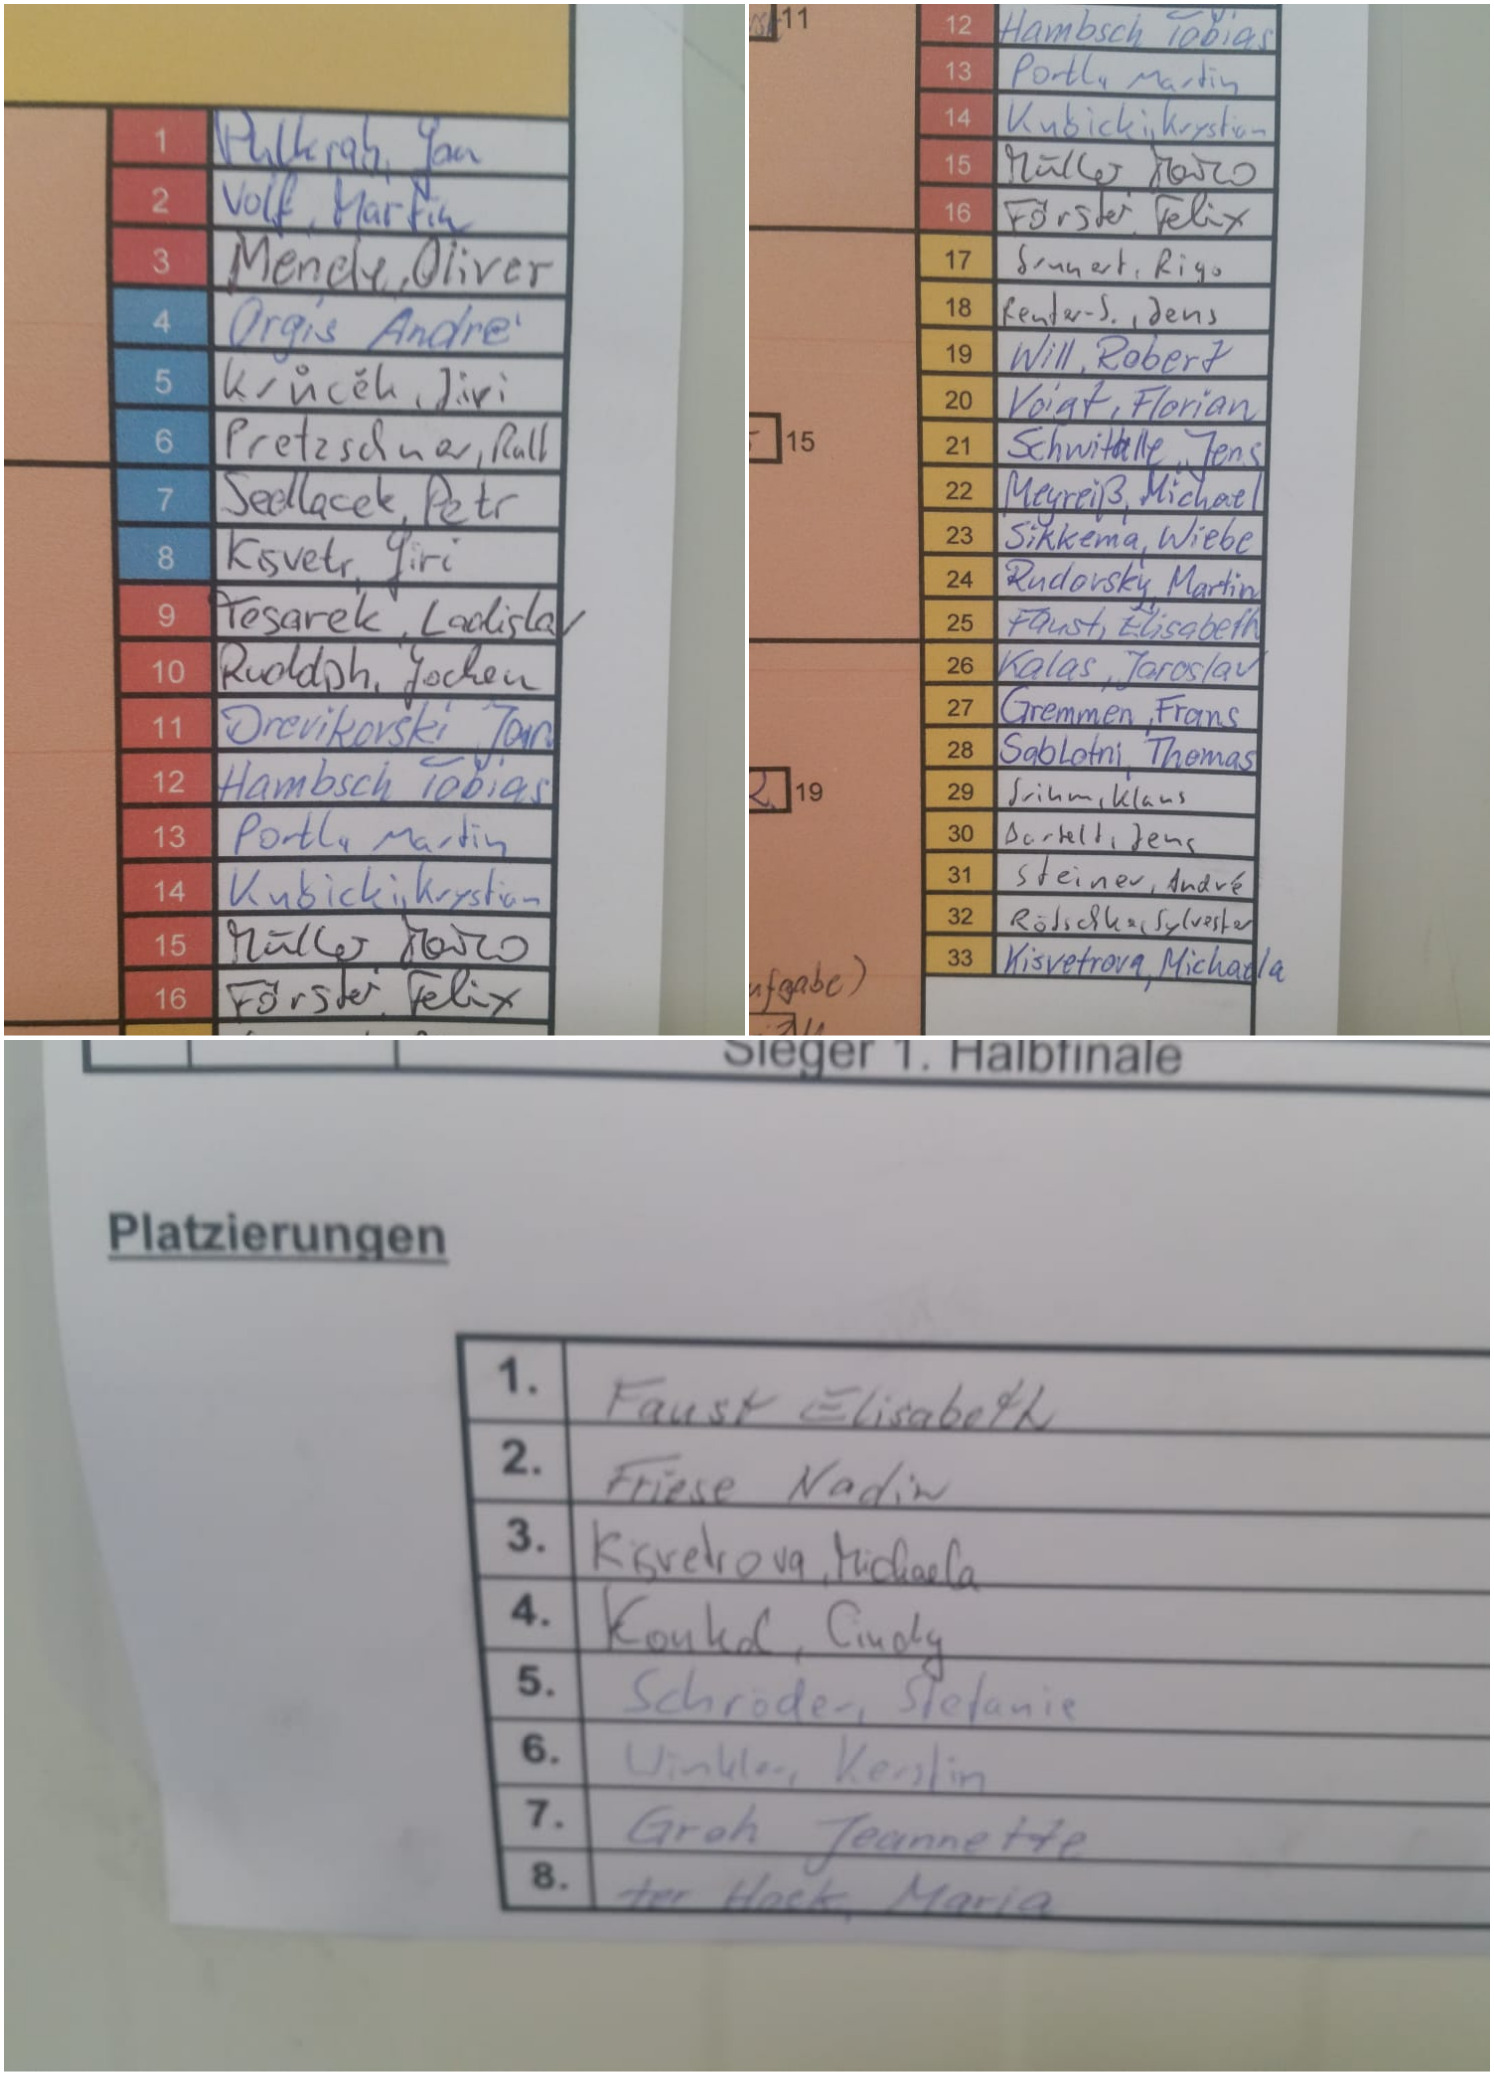 1 Pulkrab, Jan
2 Volf, Martin
3 Mende, Oliver
4 Orgis André
5 Krůček, Jiri
6 Pretzschner, Ralf
7 Sedlacek, Petr
8 Kisvetr, Jiri
9 Tesarek, Ladislav
10 Rudolph, Jochen
11 Drevikovski Jan
12 Hambsch Tobias
13 Portl, Martin
14 Kubicki, Krystian
15 Müller Marco
16 Förster, Felix
11
12 Hambsch Tobias
13 Portl, Martin
14 Kubicki, Krystian
15 Müller Marco
16 Förster, Felix
17 Rigo
18 Reuter-S., Jens
19 Will, Robert
20 Voigt, Florian
15
21 Schwitalle, Jens
22 Meyreiß, Michael
23 Sikkema, Wiebe
24 Rudovsky, Martin
25 Faust, Elisabeth
26 Kalas, Jaroslav
27 Gremmen, Frans
28 Sablotni, Thomas
19
29 Klaus
30 Bartelt, Jens
31 Steiner, André
32 Rötschke, Sylvester
33 Kisvetrova, Michaela
ufgabe)
Sieger 1. Halbfinale
Platzierungen
1. Faust Elisabeth
2. Friese Nadin
3. Kisvetrova, Michaela
4. Konkol, Cindy
5. Schröder, Stefanie
6. Winkler, Kerstin
7. Groh Jeannette
8. ter Hoek, Maria